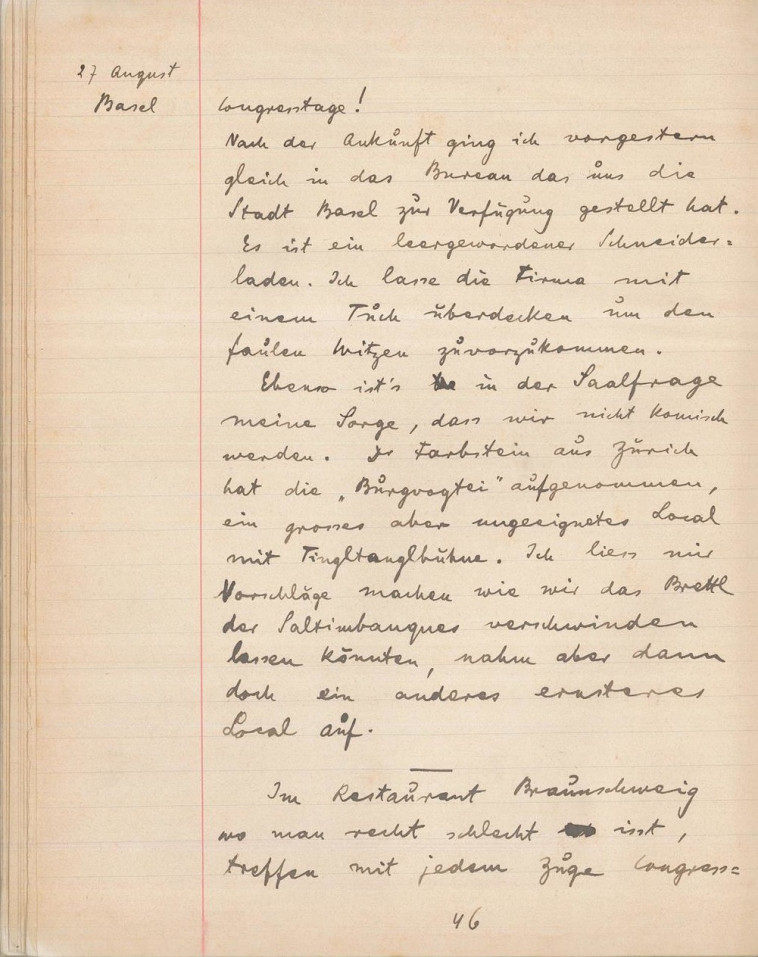 27 August
Basel
Congresstage!
Nach der Ankunft ging ich vorgestern
gleich in das Bureau das uns die
Stadt Basel zur Verfügung gestellt hat.
Es ist ein leergewordener Schneider=
laden. Ich lasse die Firma mit
einem Tuch überdecken um den
faulen Witzen zuvorzukommen.
Ebenso ist's in der Saalfrage
meine Sorge, dass wir nicht komisch
werden. Dr Farbstein aus Zürich
hat die „Burgvogtei" aufgenommen,
ein grosses aber ungeeignetes Local
mit Tingltanglbühne. Ich liess mir
Vorschläge machen wie wir das Brettl
der Saltimbanques verschwinden
lassen könnten, nahm aber dann
doch ein anderes ernsteres
Local auf.
Im Restaurant Braunschweig
wo man recht schlecht isst,
treffen mit jedem Zuge Congress=
46